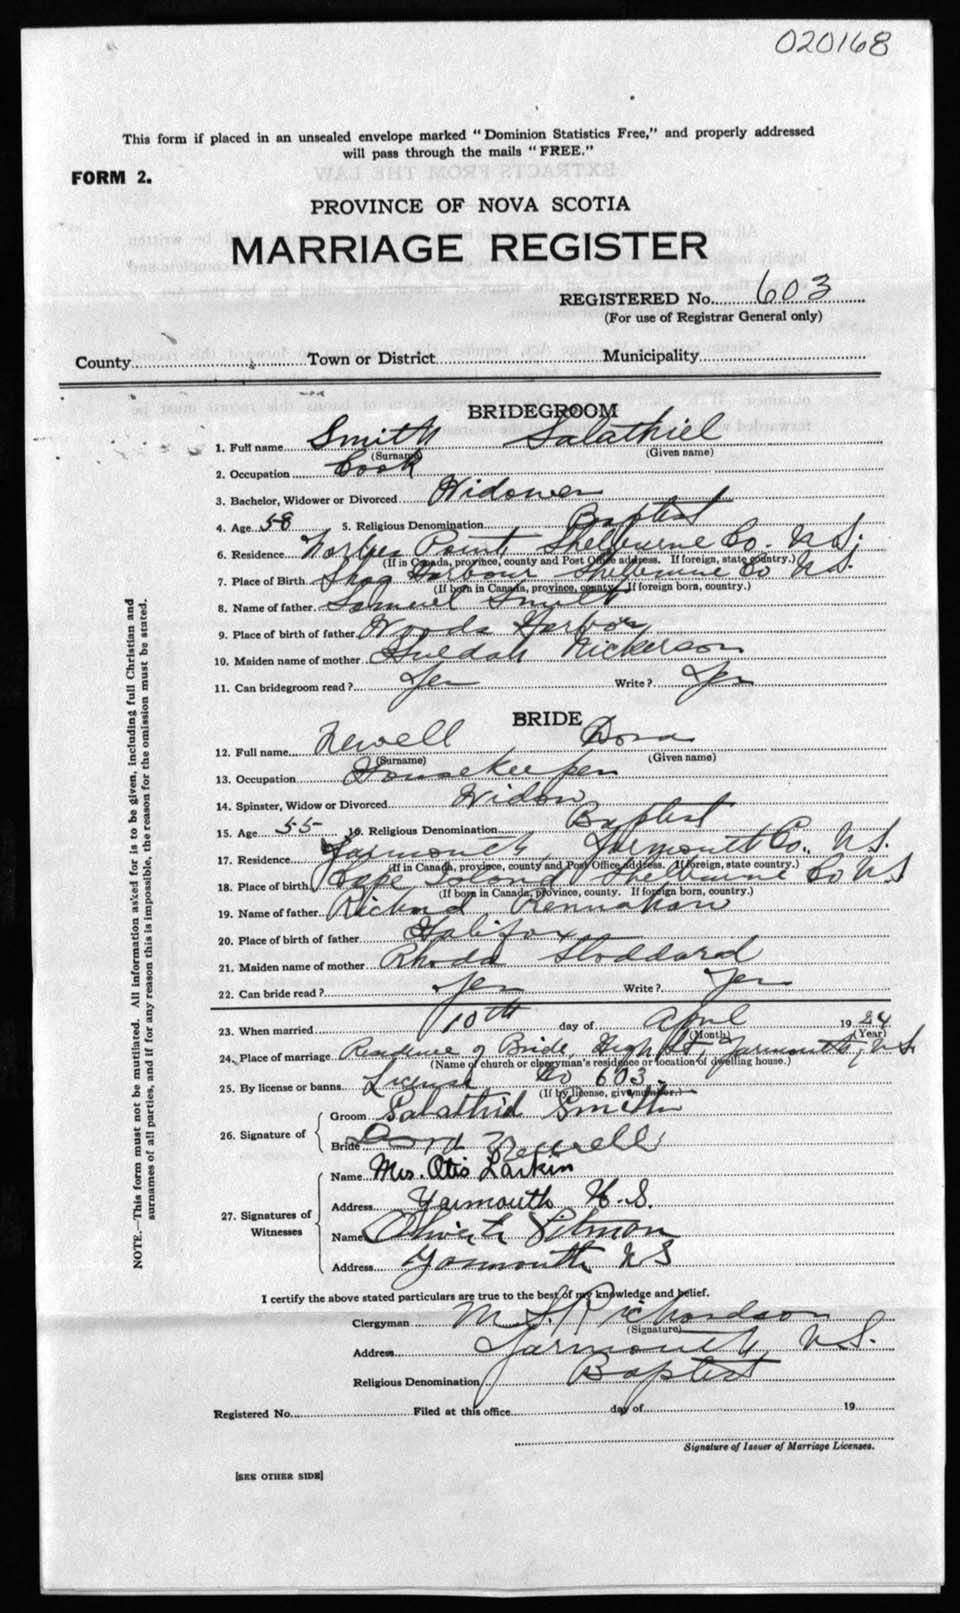 020168
This form if placed in an unsealed envelope marked "Dominion Statistics Free," and properly addressed
will pass through the mails "FREE."
FORM 2.
PROVINCE OF NOVA SCOTIA
MARRIAGE REGISTER
REGISTERED No. 603
(For use of Registrar General only)
County Town or District Municipality
BRIDEGROOM
1. Full name Smith Salathiel
(Surname) (Given name)
2. Occupation Cook
3. Bachelor, Widower or Divorced Widower
4. Age 58 5. Religious Denomination Baptist
6. Residence Forbes Point, Shelburne Co. N.S.
(If in Canada, province, county and Post Office address. If foreign, state country.)
7. Place of Birth Shag Harbour Shelburne Co N.S.
(If born in Canada, province, county. If foreign born, country.)
8. Name of father Samuel Smith
9. Place of birth of father Woods Harbor
10. Maiden name of mother Huldah Nickerson
11. Can bridegroom read? Yes Write? Yes
BRIDE
12. Full name Newell Dora
(Surname) (Given name)
13. Occupation Housekeeper
14. Spinster, Widow or Divorced Widow
15. Age 55 16. Religious Denomination Baptist
17. Residence Yarmouth, Yarmouth Co., N.S.
(If in Canada, province, county and Post Office address. If foreign, state country.)
18. Place of birth Cape Island Shelburne Co N.S
(If born in Canada, province, county. If foreign born, country.)
19. Name of father Richard
20. Place of birth of father Halifax
21. Maiden name of mother Rhoda Stoddard
22. Can bride read? Yes Write? Yes
23. When married 10th day of April 1924
(Month) (Year)
24. Place of marriage Residence of Bride, High St, Yarmouth, N.S.
(Name of church or clergyman's residence or location of dwelling house.)
25. By license or banns License No 603
(If by license, give number.)
26. Signature of
Groom Salathiel Smith
Bride Dora Newell
27. Signatures of Witnesses
Name Mrs. Otis Larkin
Address Yarmouth N.S.
Name Pitman
Address Yarmouth N S
I certify the above stated particulars are true to the best of my knowledge and belief.
Clergyman M. S. Richardson
(Signature)
Address Yarmouth, N.S.
Religious Denomination Baptist
Registered No. Filed at this office day of 19
Signature of Issuer of Marriage Licenses.
[SEE OTHER SIDE]
NOTE.—This form must not be mutilated. All information asked for is to be given, including full Christian and
surnames of all parties, and if for any reason this is impossible, the reason for the omission must be stated.